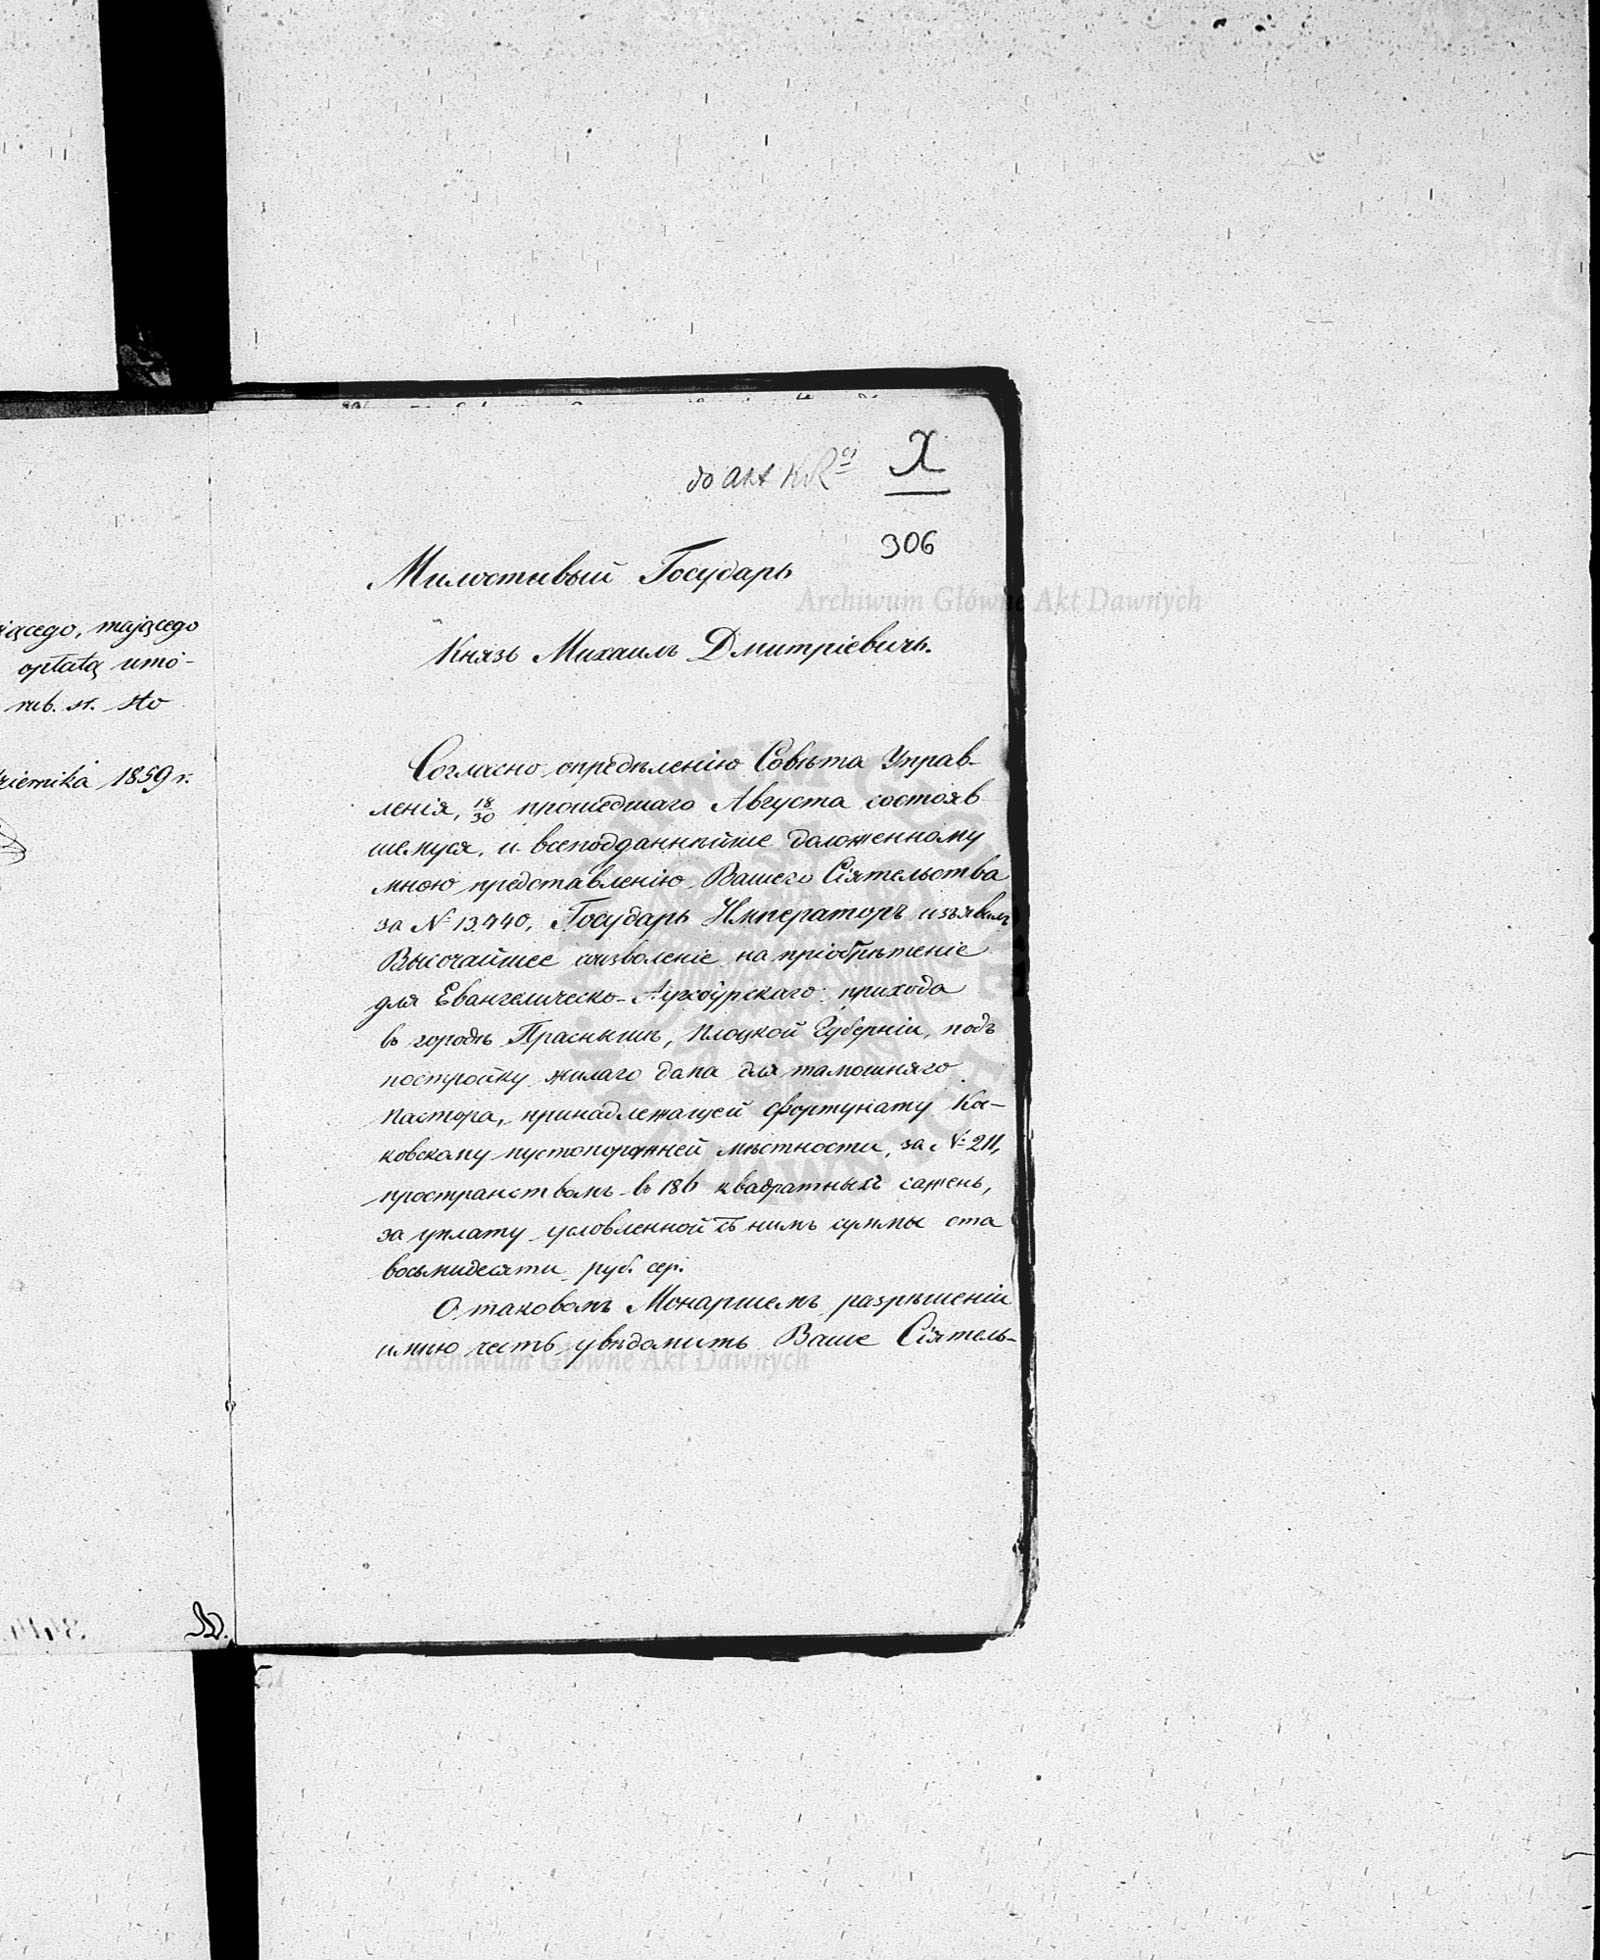 iącego, mającego
opłatą umó-
rub. sr. sto
ziernika 1859 r.
do akt KR
X
306
Милостивый Государь
Князь Михаилъ Дмитріевичъ.
Согласно опредѣленію Совѣта Управ-
ленія, 18/30 прошедшаго Августа состояв-
шемуся, и всеподданнѣйше доложенному
мною представленію Вашего Сіятельства
за № 13.440, Государь Императоръ изъявилъ
Высочайшее соизволеніе на пріобрѣтеніе
для Евангелическо-Аугсбурскаго прихода
въ городѣ Праснышѣ, Плоцкой Губерніи, подъ
постройку жилаго дома для тамошняго
пастора, принадлежащей Фортунату Ка-
ковскому пустопорожней мѣстности, за № 211,
пространствомъ въ 186 квадратныхъ сажень,
за уплату условленной съ нимъ суммы ста
восьмидесяти руб. сер.
О таковомъ Монаршемъ разрѣшеніи
имѣю честь увѣдомить Ваше Сіятель-
Archiwum Główne Akt Dawnych
Archiwum Główne Akt Dawnych